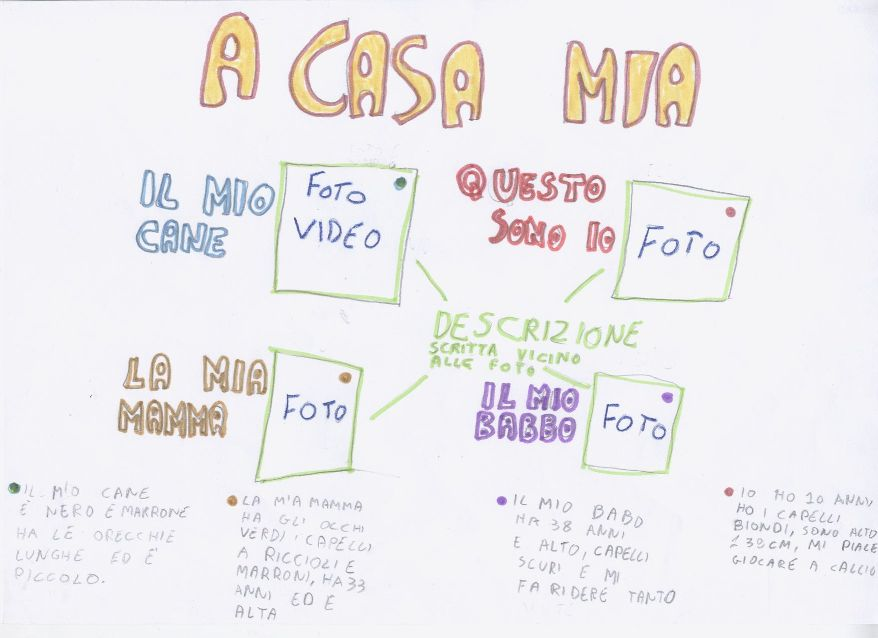 A CASA MIA
IL MIO
CANE
FOTO
VIDEO
QUESTO
SONO IO
FOTO
DESCRIZIONE
SCRITTA VICINO
ALLE FOTO
LA MIA
MAMMA
FOTO
IL MIO
BABBO
FOTO
IL MIO CANE
È NERO E MARRONE
HA LE ORECCHIE
LUNGHE ED È
PICCOLO.
LA MIA MAMMA
HA GLI OCCHI
VERDI, I CAPELLI
A RICCIOLI E
MARRONI, HA 33
ANNI ED E
ALTA
IL MIO BABO
HA 38 ANNI
E ALTO, CAPELLI
SCURI E MI
FA RIDERE TANTO
IO HO 10 ANNI,
HO I CAPELLI
BIONDI, SONO ALTO
138CM, MI PIALE
GIOCARE A CALCIO